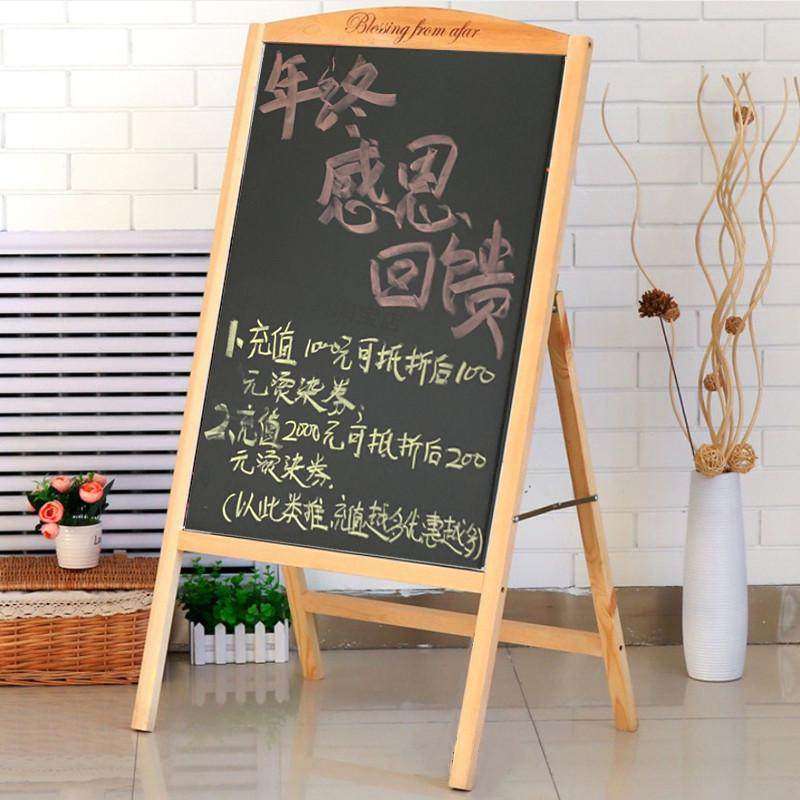 Blessing from afar
年终
感恩
回馈
1、充值1000元可抵折后100
元烫染券；
2、充值2000元可抵折后200
元烫染券.
(以此类推,充值越多优惠越多)